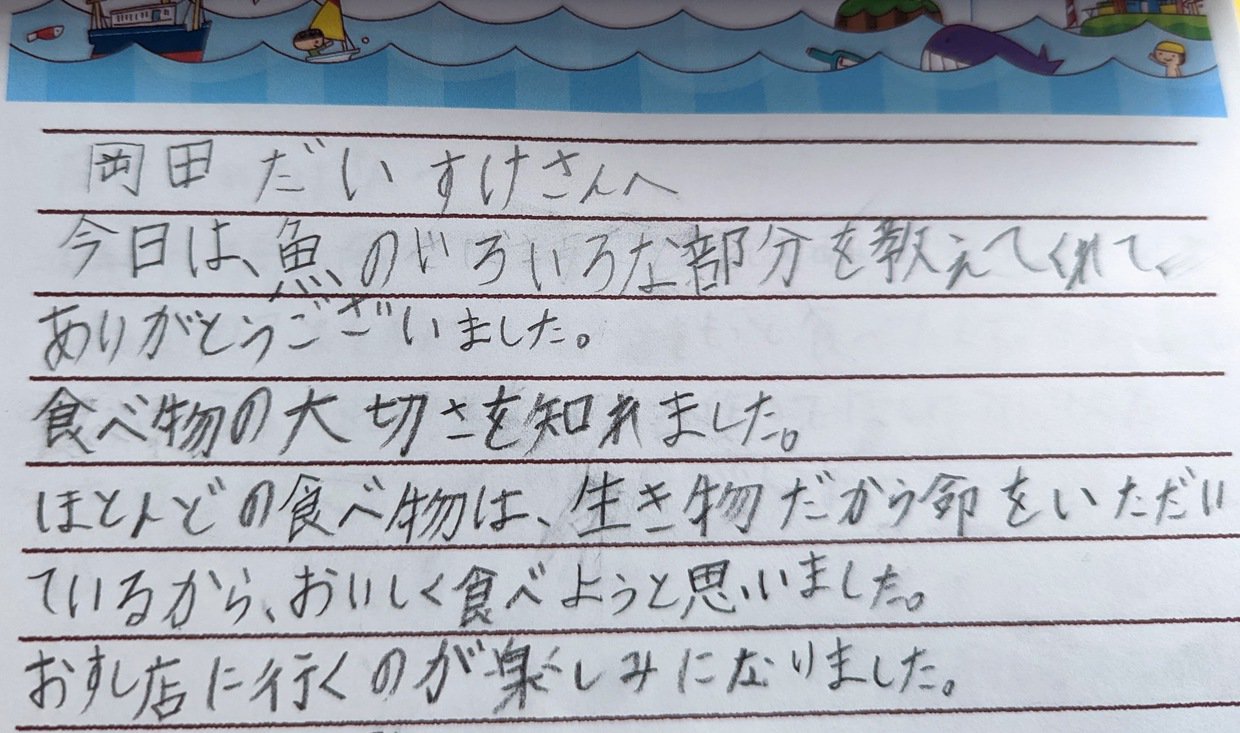 岡田 だいすけさんへ
今日は、魚のいろいろな部分を教えてくれて、
ありがとうございました。
食べ物の大切さを知れました。
ほとんどの食べ物は、生き物だから命をいただい
ているから、おいしく食べようと思いました。
おすし店に行くのが楽しみになりました。